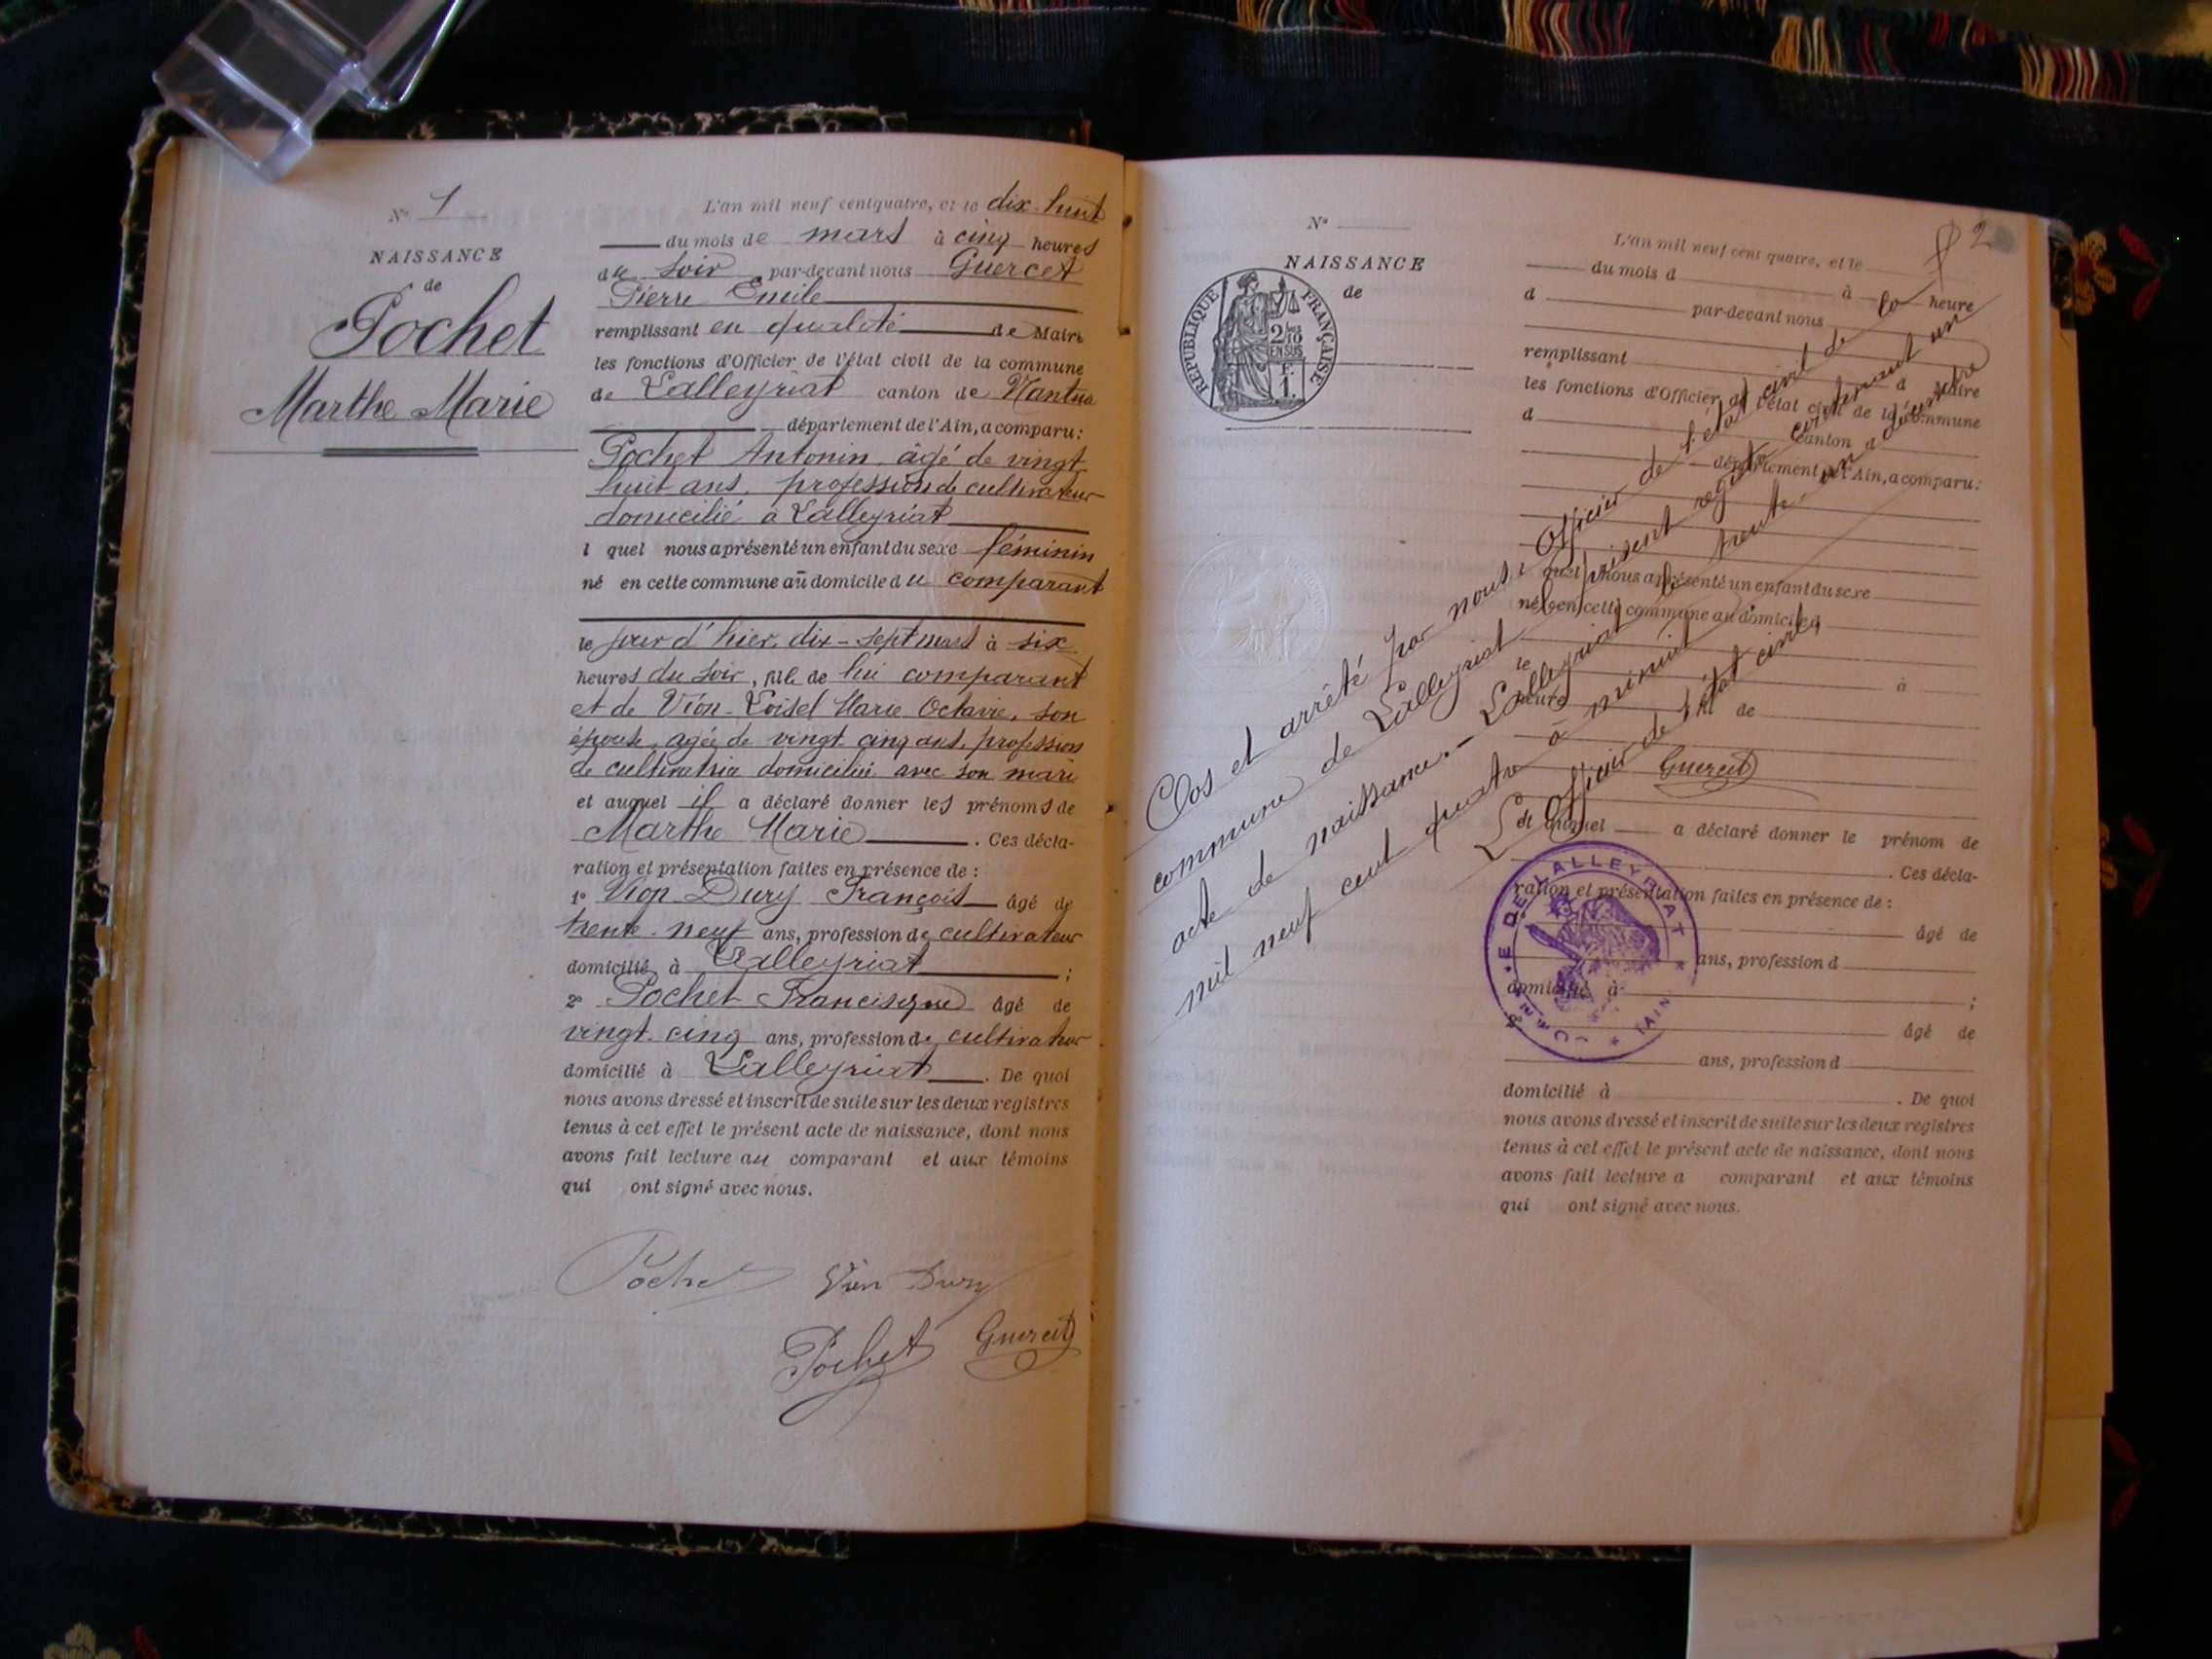 N° 1
NAISSANCE
de
Pochet
Marthe Marie
L'an mil neuf cent quatre, et le dix-huit
du mois de mars à cinq heures
du soir par-devant nous Guercet
Pierre Emile
remplissant en qualité de Maire
les fonctions d'Officier de l'état civil de la commune
de Lalleyriat canton de Nantua
département de l'Ain, a comparu:
Pochet Antonin âgé de vingt
huit ans, profession de cultivateur
domicilié à Lalleyriat
l quel nous a présenté un enfant du sexe féminin
né en cette commune au domicile du comparant
le jour d'hier, dix-sept mars à six
heures du soir, fille de lui comparant
et de Vion-Loisel Marie Octavie, son
épouse, agée de vingt cinq ans, profession
de cultivatrice domiciliée avec son mari
et auquel il a déclaré donner les prénoms de
Marthe Marie. Ces décla-
ration et présentation faites en présence de :
1° Vion Dury François âgé de
trente-neuf ans, profession de cultivateur
domicilié à Lalleyriat ;
2° Pochet Francisque âgé de
vingt-cinq ans, profession de cultivateur
domicilié à Lalleyriat. De quoi
nous avons dressé et inscrit de suite sur les deux registres
tenus à cet effet le présent acte de naissance, dont nous
avons fait lecture au comparant et aux témoins
qui ont signé avec nous.
Pochet Vion Dury
Pochet Guercet
2
N°
NAISSANCE
de
RÉPUBLIQUE FRANÇAISE
2/10
EN SUS
1 f.
L'an mil neuf cent quatre, et le
du mois d à heure
d par-devant nous
remplissant d Maire
les fonctions d'Officier de l'état civil de la commune
d canton d
département de l'Ain, a comparu:
l quel nous a présenté un enfant du sexe
né en cette commune au domicile d
le à
heure fil de
et auquel a déclaré donner le prénom de
. Ces décla-
ration et présentation faites en présence de :
âgé de
ans, profession d
domicilié à ;
âgé de
ans, profession d
domicilié à . De quoi
nous avons dressé et inscrit de suite sur les deux registres
tenus à cet effet le présent acte de naissance, dont nous
avons fait lecture a comparant et aux témoins
qui ont signé avec nous.
Clos et arrêté par nous Officier de l'état civil de la
commune de Lalleyriat le présent registre contenant un
acte de naissance. - Lalleyriat le trente-un décembre
mil neuf cent quatre à minuit.
L'Officier de l'état civil,
Guercet
DE LALLEYRIAT * (AIN) *